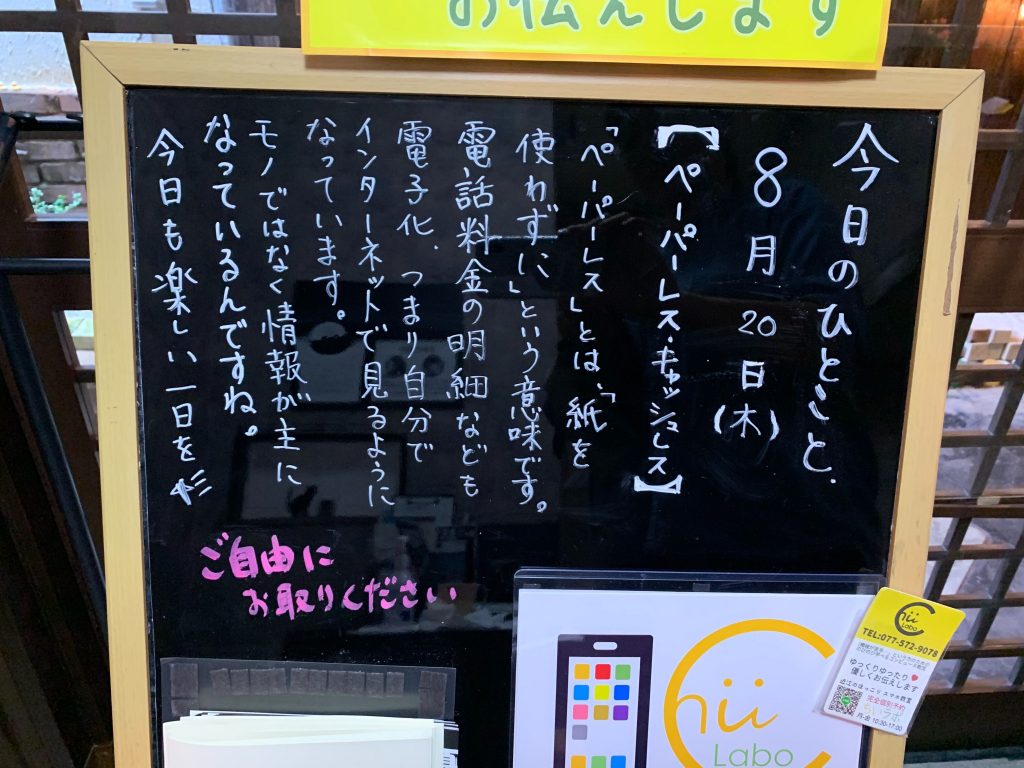 お伝えします
今日のひとこと.
8月20日(木)
【ペーパーレス・キャッシュレス】
「ペーパーレス」とは、「紙を
使わずに」という意味です。
電話料金の明細なども
電子化、つまり自分で
インターネットで見るように
なっています。
モノではなく情報が主に
なっているんですね。
今日も楽しい一日を
ご自由に
お取りください
Chii
Labo
Chii
Labo
TEL:077-572-9078
ゆっくりゆったり
優しくお伝えします
近江のほっこりスマホ教室
完全個別予約
ちいラボ
月-金 10:30-17:00